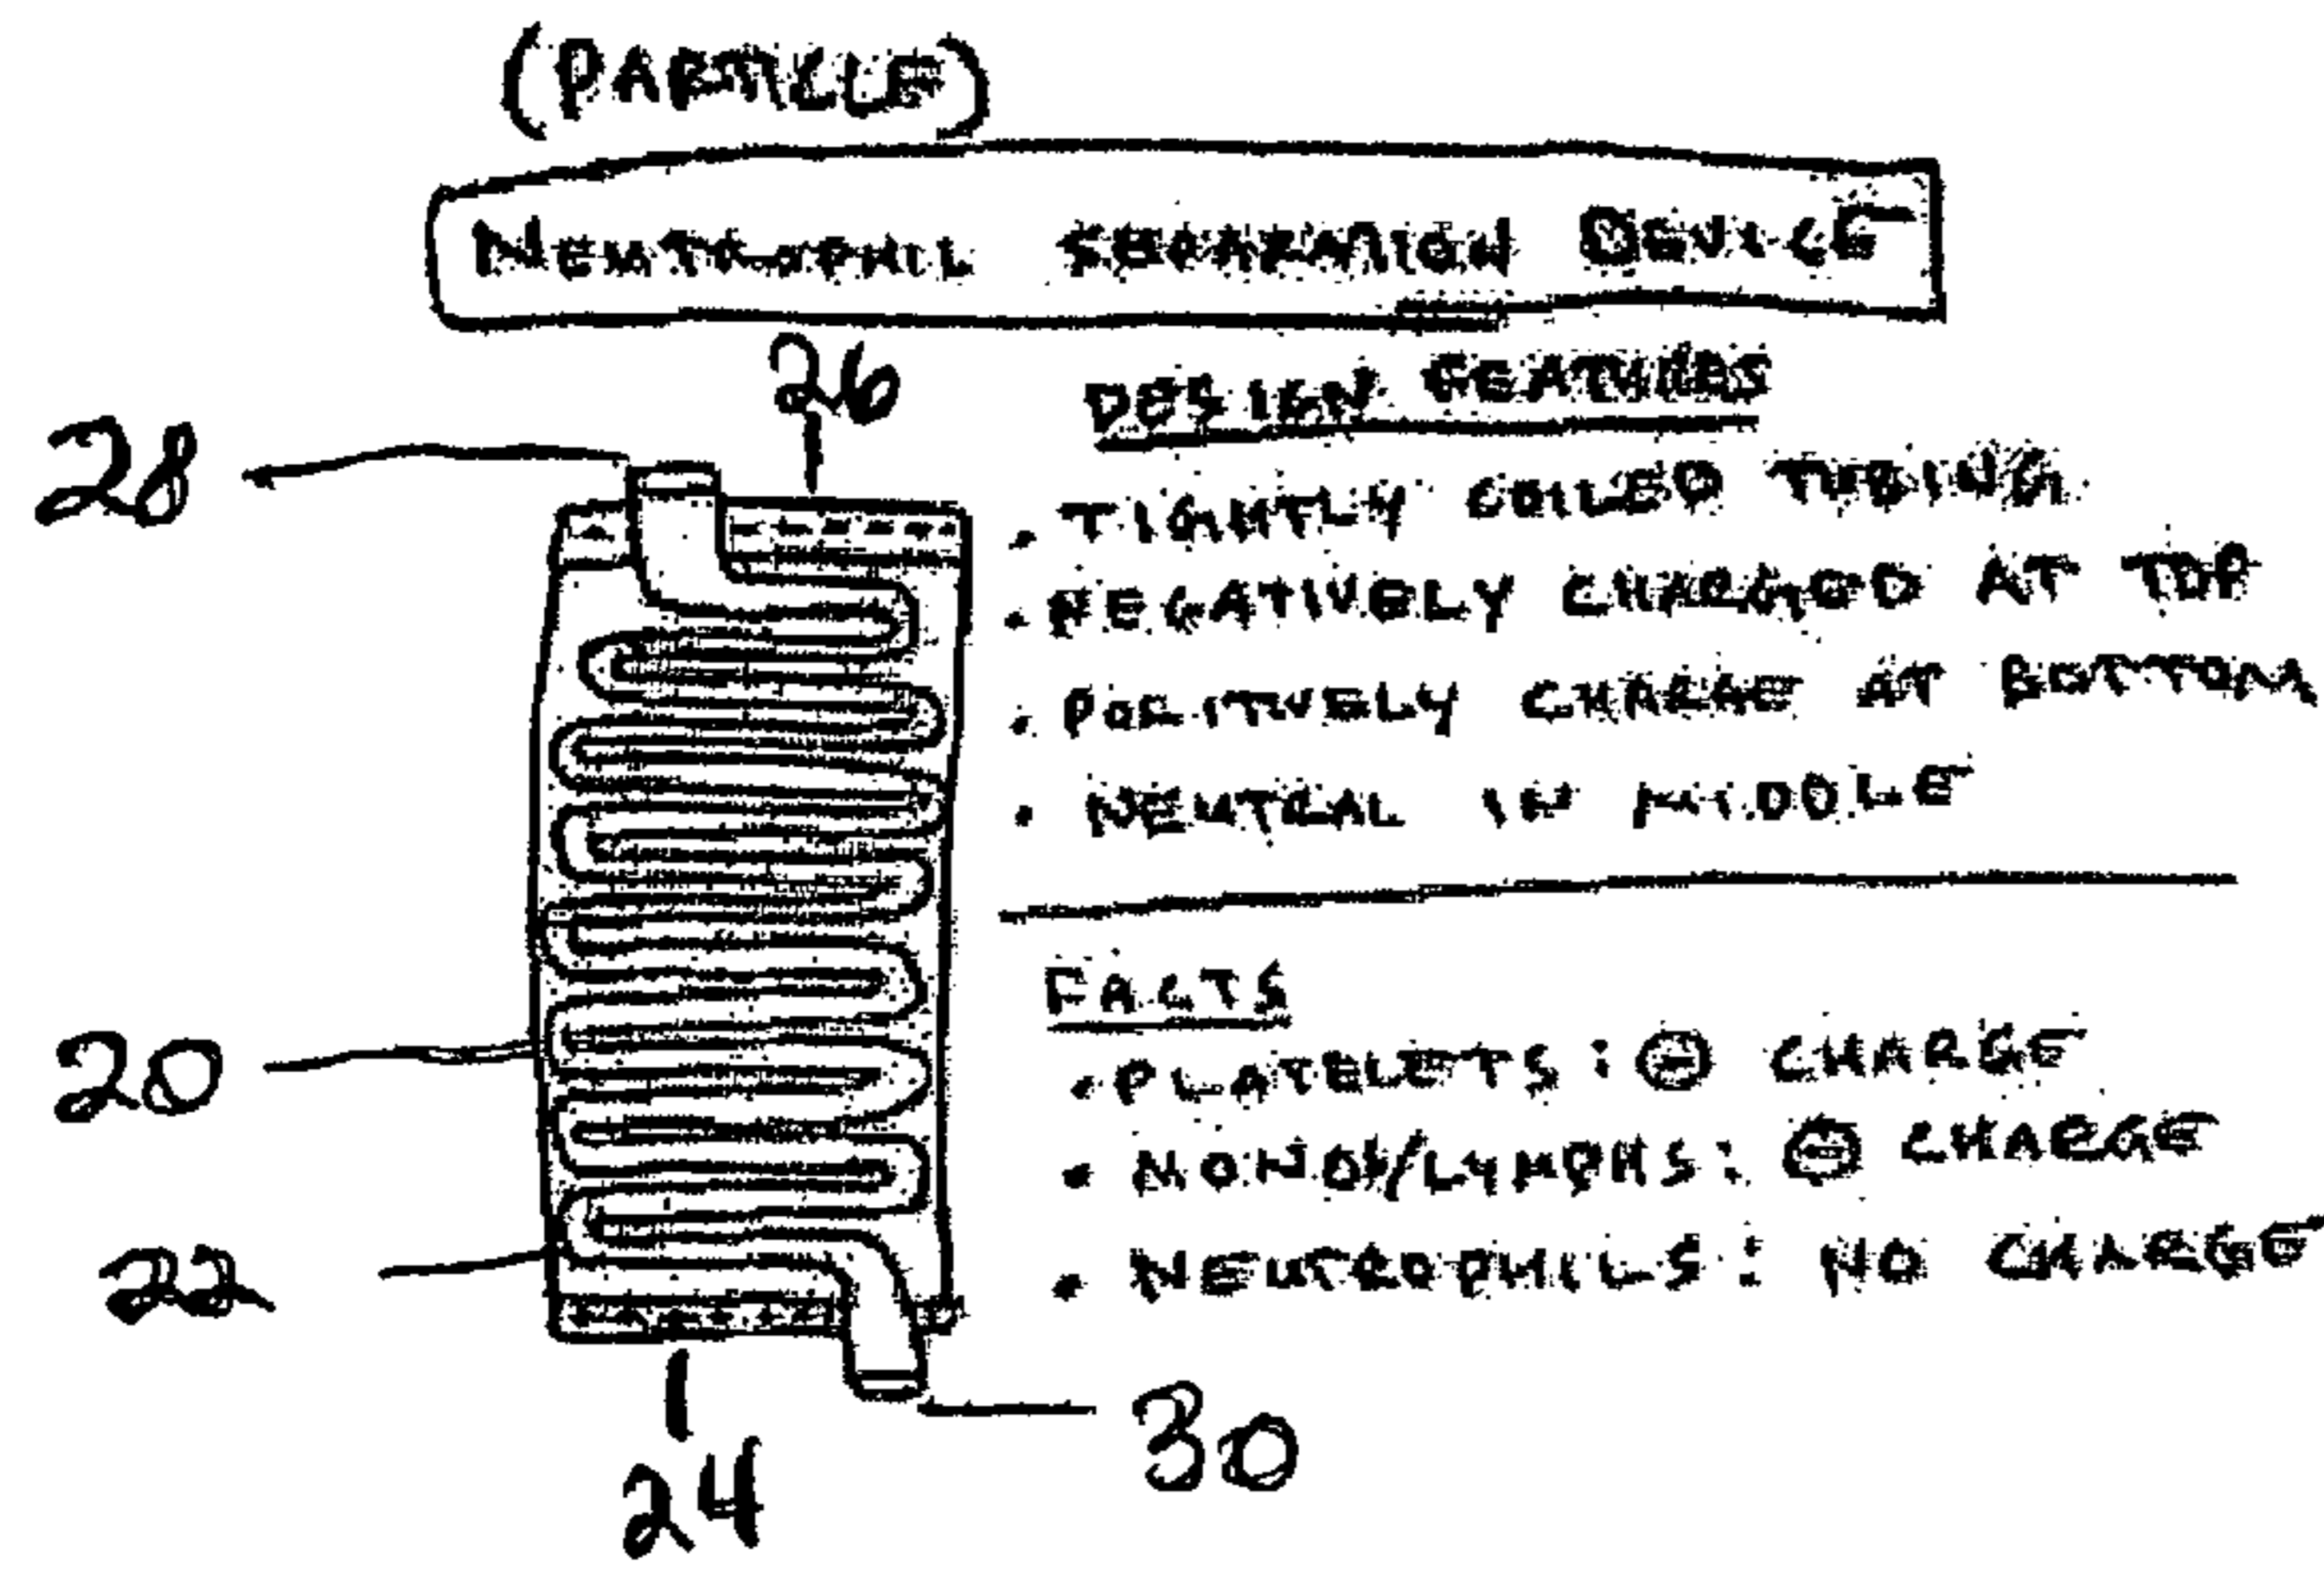 (PARTICLE)
NEUTROPHIL SEPARATION DEVICE
26
28
DESIGN FEATURES
• TIGHTLY COILED TUBING
• NEGATIVELY CHARGED AT TOP
• POSITIVELY CHARGE AT BOTTOM
• NEUTRAL IN MIDDLE
FACTS
20
• PLATELETS: ⊖ CHARGE
• MONOS/LYMPHS: ⊖ CHARGE
22
• NEUTROPHILS: NO CHARGE
24
30